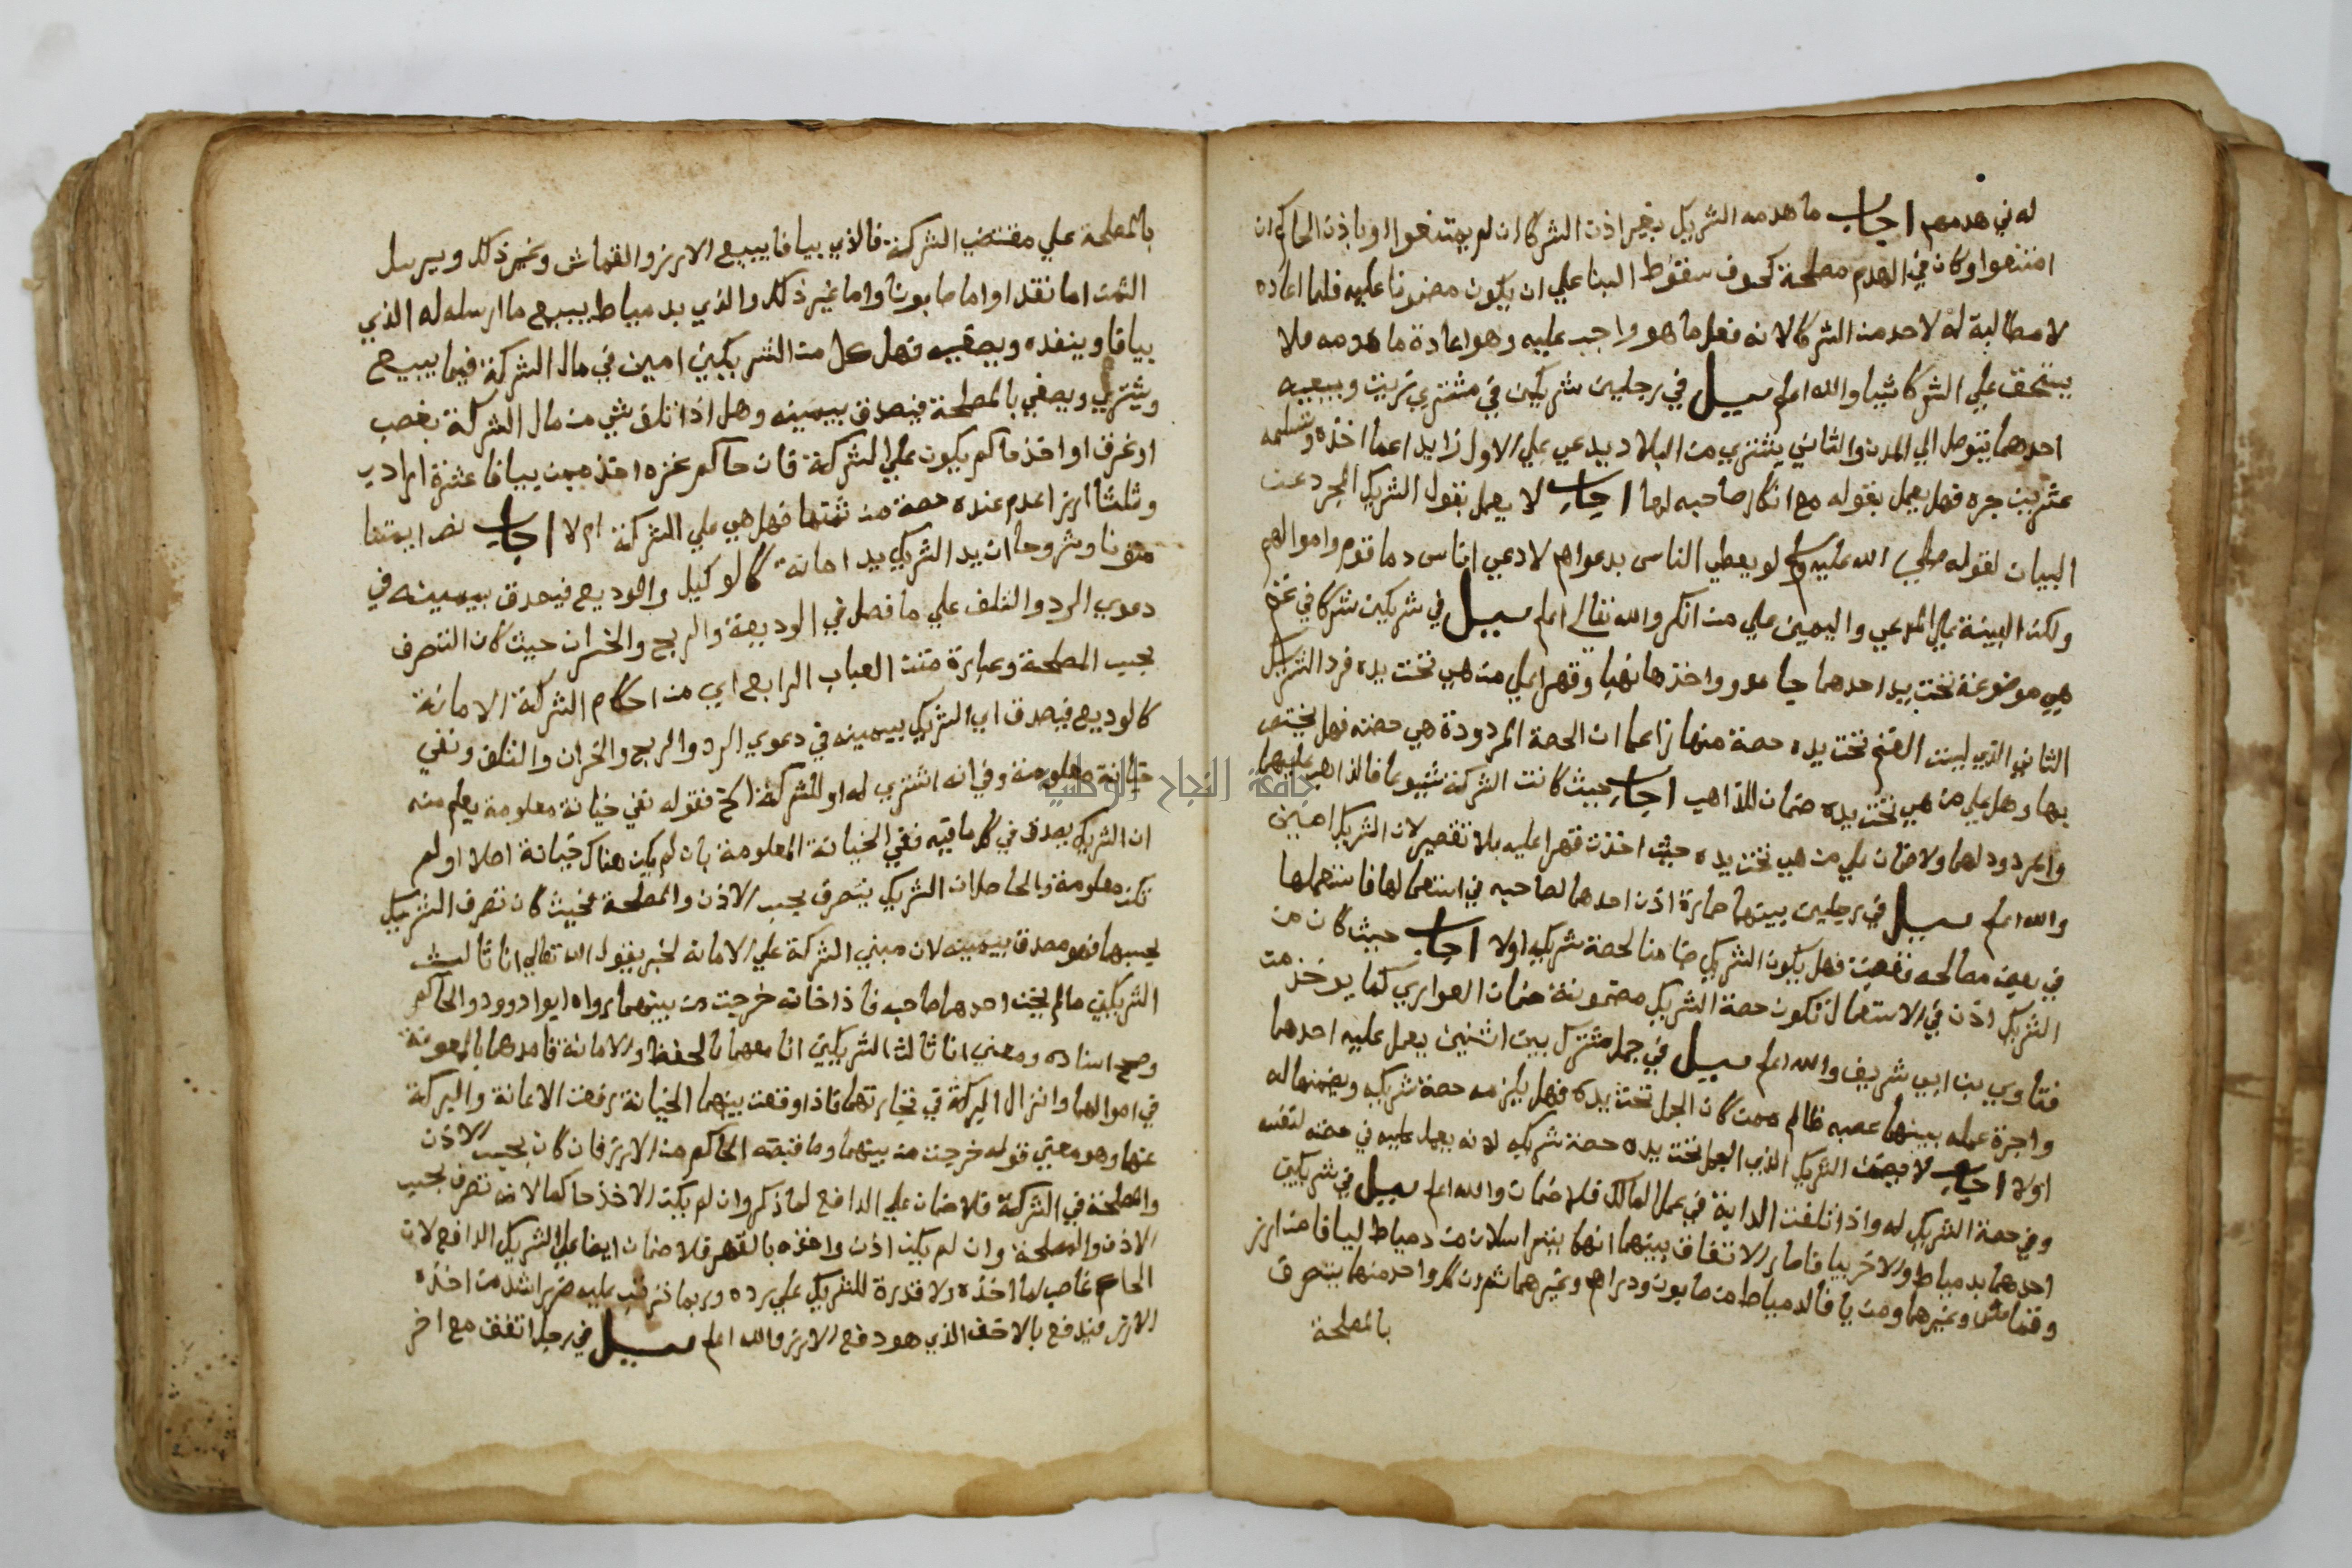 له في هدمهم اجاب ما هدمه الشريك بغير اذن الشركا ان لم يمتنعوا او باذن الحاكم ان
امتنعوا وكان في الهدم مصلحة كخوف سقوط البنا علي ان يكون مضمونا عليه فلما اعاده
لا مطالبة له لاحد من الشركا لانه فعل ما هو واجب عليه وهو اعادة ما هدمه فلا
يستحق علي الشركا شيا والله اعلم سيل في رجلين شريكين في مشتري زيت وبيعه
احدهما يتوصل الي المدن والثاني يشتري من البلاد يدعي علي الاول زايد اعما اخذه وتسلمه
عشرين جره فهل يعمل بقوله مع انكار صاحبه لها اجاب لا يعمل بقول الشريك المجرد عن
البيان لقوله صلي الله عليه وسلم لو يعطي الناس بدعواهم لادعي اناس دما قوم واموالهم
ولكن البينة علي المدعي واليمين علي من انكر والله تعالي اعلم سيل في شريكين شركا في غنم
هي موضوعة تحت يد احدهما جا عدو واخذها نهبا وقهرا علي من هي تحت يده فرد الشريك
الثاني الذي ليست الغنم تحت يده حصة منها زاعما ان الحصة المردودة هي حصته فهل يختص
بها وهل علي من هي تحت يده ضمان للذاهب اجاب حيث كانت الشركة شيوعا فالذاهب عليهما
والمردود لهما ولا ضمان علي من هي تحت يده حيث اخذت قهرا عليه بلا تقصير لان الشريك امين
والله اعلم سيل في رجلين بينهما حمارة اذن احدهما لصاحبه في استعمالها فاستعملها
في بعض مصالحه فنفقت فهل يكون الشريك ضامنا لحصة شريكه اولا اجاب حيث كان من
الشريك اذن في الاستعمال تكون حصة الشريك مضمونة ضمان العواري كما يوخذ من
فتاوي بن ابي شريف والله اعلم سيل في جمل مشترك بين اثنين يعمل عليه احدهما
واجرة عمله بينهما غصبه ظالم ممن كان الجمل تحت يده فهل يلزمه حصة شريكه ويضمنها له
اولا اجاب لا يضمن الشريك الذي الجمل تحت يده حصة شريكه لانه يعمل عليه في حصته لنفسه
وفي حصة الشريك له واذا تلفت الدابة في عمل المالك فلا ضمان والله اعلم سيل في شريكين
احدهما بدمياط والاخر بيافا صار الاتفاق بينهما انهما يتراسلان من دمياط ليافا من ارز
وقماش وغيرهما ومن يافا لدمياط من صابون ودراهم وغيرهما ثم ان كل واحد منهما يتصرف
بالمصلحة
بالمصلحة علي مقتضي الشركة فالذي بيافا يبيع الارز والقماش وغير ذلك ويرسل
الثمن اما نقدا واما صابونا واما غير ذلك والذي بدمياط يبيع ما ارسله له الذي
بيافا وينفذه ويصفيه فهل كل من الشريكين امين في مال الشركة فيما يبيع
ويشتري ويصفي بالمصلحة فيصدق بيمينه وهل اذا تلف شي من مال الشركة بغصب
او غرق او اخذ حاكم يكون علي الشركة فان حاكم غزه اخذ ممن بيافا عشرة ارادب
وثلثا ارز اعدم عنده حصة من ثمنها فهل هي علي الشركة ام لا اجاب نص ايمتنا
متونا وشروحا ان يد الشريك يد امانة كالوكيل والوديع فيصدق بيمينه في
دعوي الرد والتلف علي ما فصل في الوديعة والربح والخسران حيث كان التصرف
بحسب المصلحة وعبارة متن العباب الرابع اي من احكام الشركة الامانة
كالوديع فيصدق اي الشريك بيمينه في دعوي الرد والربح والخسران والتلف ونفي
خيانة معلومة وفي انه اشتري له او للشركة الخ فقوله نفي خيانة معلومة يعلم منه
ان الشريك يصدق في كل ما فيه نفي الخيانة المعلومة بان لم يكن هناك خيانة اصلا او لم
تكن معلومة والحاصل ان الشريك يتصرف بحسب الاذن والمصلحة فحيث كان تصرف الشريك
بحسبها فهو مصدق بيمينه لان مبني الشركة علي الامانة لخبر يقول الله تعالي انا ثالث
الشريكين مالم يخن احدهما صاحبه فاذا خانه خرجت من بينهما رواه ابوا داوود والحاكم
وصح اسناده ومعني انا ثالث الشريكين انا معهما بالحفظ والامانة فامدهما بالمعونة
في اموالهما وانزال البركة في تجارتهما فاذا وقعت بينهما الخيانة رفعت الاعانة والبركة
عنهما وهو معني قوله خرجت من بينهما وما قبضه الحاكم من الارز فان كان بحسب الاذن
والمصلحة في الشركة فلا ضمان علي الدافع لما ذكر وان لم يكن الاخذ حاكما لانه تصرف بحسب
الاذن والمصلحة وان لم يكن اذن واخذه بالقهر فلا ضمان ايضا علي الشريك الدافع لان
الحاكم غاصب لما اخذه ولا قدرة للشريك علي رده وربما ترتب عليه ضرر اشد من اخذه
الارز فيدفع بالاخف الذي هو دفع الارز والله اعلم سيل في رجل اتفق مع اخر
جامعة النجاح الوطنية